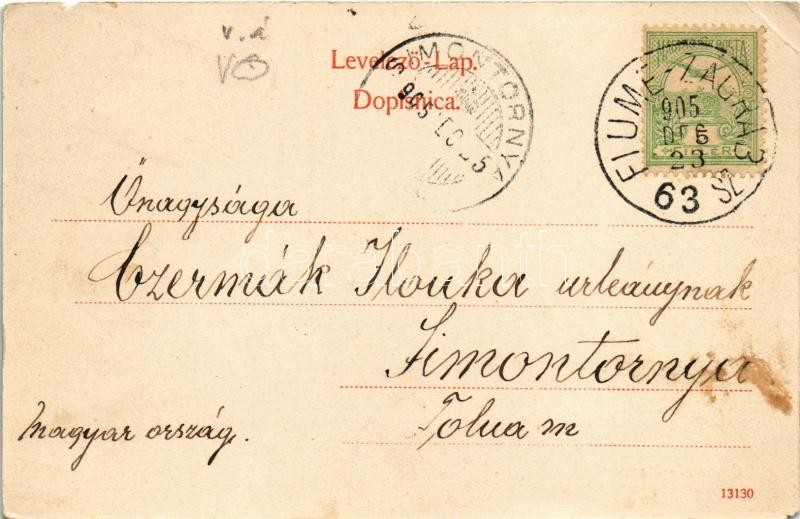 v.á
VO
Levelező-Lap.
Dopisnica.
SIMONTORNYA
905 DEC 25
MAGY. KIR. POSTA
FIUME-ZÁGRÁB SZ
905
DEC
23
63
Őnagysága
Czermák Ilonka urleánynak
Simontornya
Tolna m
Magyar ország.
darabanth
13130